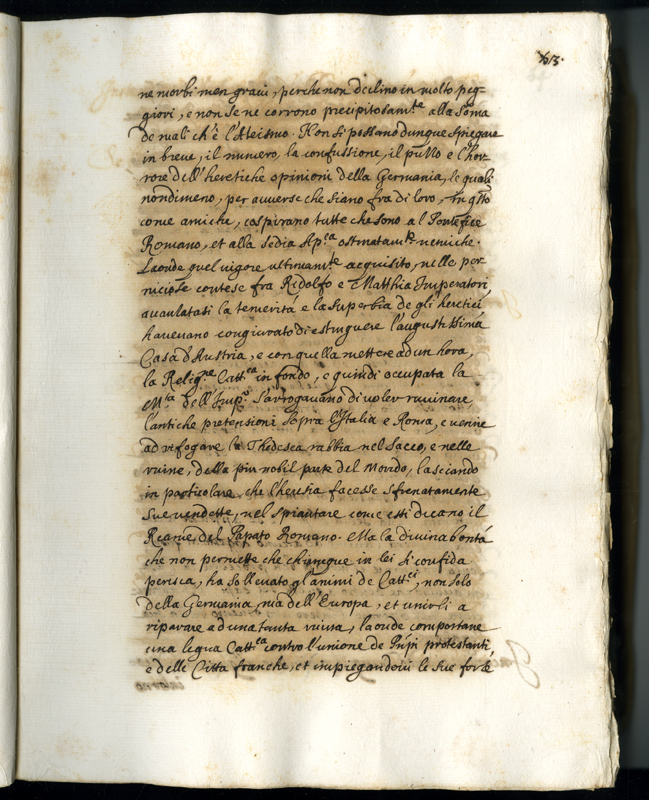 613.
ne morbi men gravi, perche non declino in molto peg-
giori, e non se ne corrono precipitosam.te alla Soma
de mali ch'è l'Ateismo. Non si possano dunque spiegare
in breve, il numero, la confussione, il puzzo e l'hor-
rore dell'heretiche opinioni della Germania, le quali
nondimeno, per averse che siano fra di loro, in q'sto
come amiche, cospirano tutte che sono al Pontefice
Romano, et alla Sedia Ap.ca ostinatam.te nemiche.
Laonde quel vigore ultimam.te acquisito, nelle per
niciose contese fra Ridolfo e Matthia Imperatori,
avanlatasi la temerità e la superbia de gli heretici,
havevano congiurato di estinguere l'augustissima
Casa d'Austria, e con quella mettere ad un hora,
la Relig.ne Catt.ca in fondo, e quindi occupata la
M.tà dell'Imp.o s'arrogavano di voler ruvinare,
l'antiche pretensioni sopra l'Italia e Roma, e venire
ad rifogare la Thedesca rabbia nel Sacco, e nelle
ruine, della piu nobil parte del Mondo, lasciando
in particolare, che l'heresia facesse sfrenatamente
sue vendette, nel spiantare come essi dicano il
Reame del Papato Romano. Ma la divina bontà
che non permette che chiunque in lei si confida
perisca, ha sollevato gl'animi de Catt.ci, non solo
della Germania, ma dell'Europa, et unirli a
riparare ad una tanta ruina, laonde comportane
una legua Catt.ca contro l'unione de Pnpi protestanti,
e delle Citta franche, et impiegandovi le sue forze